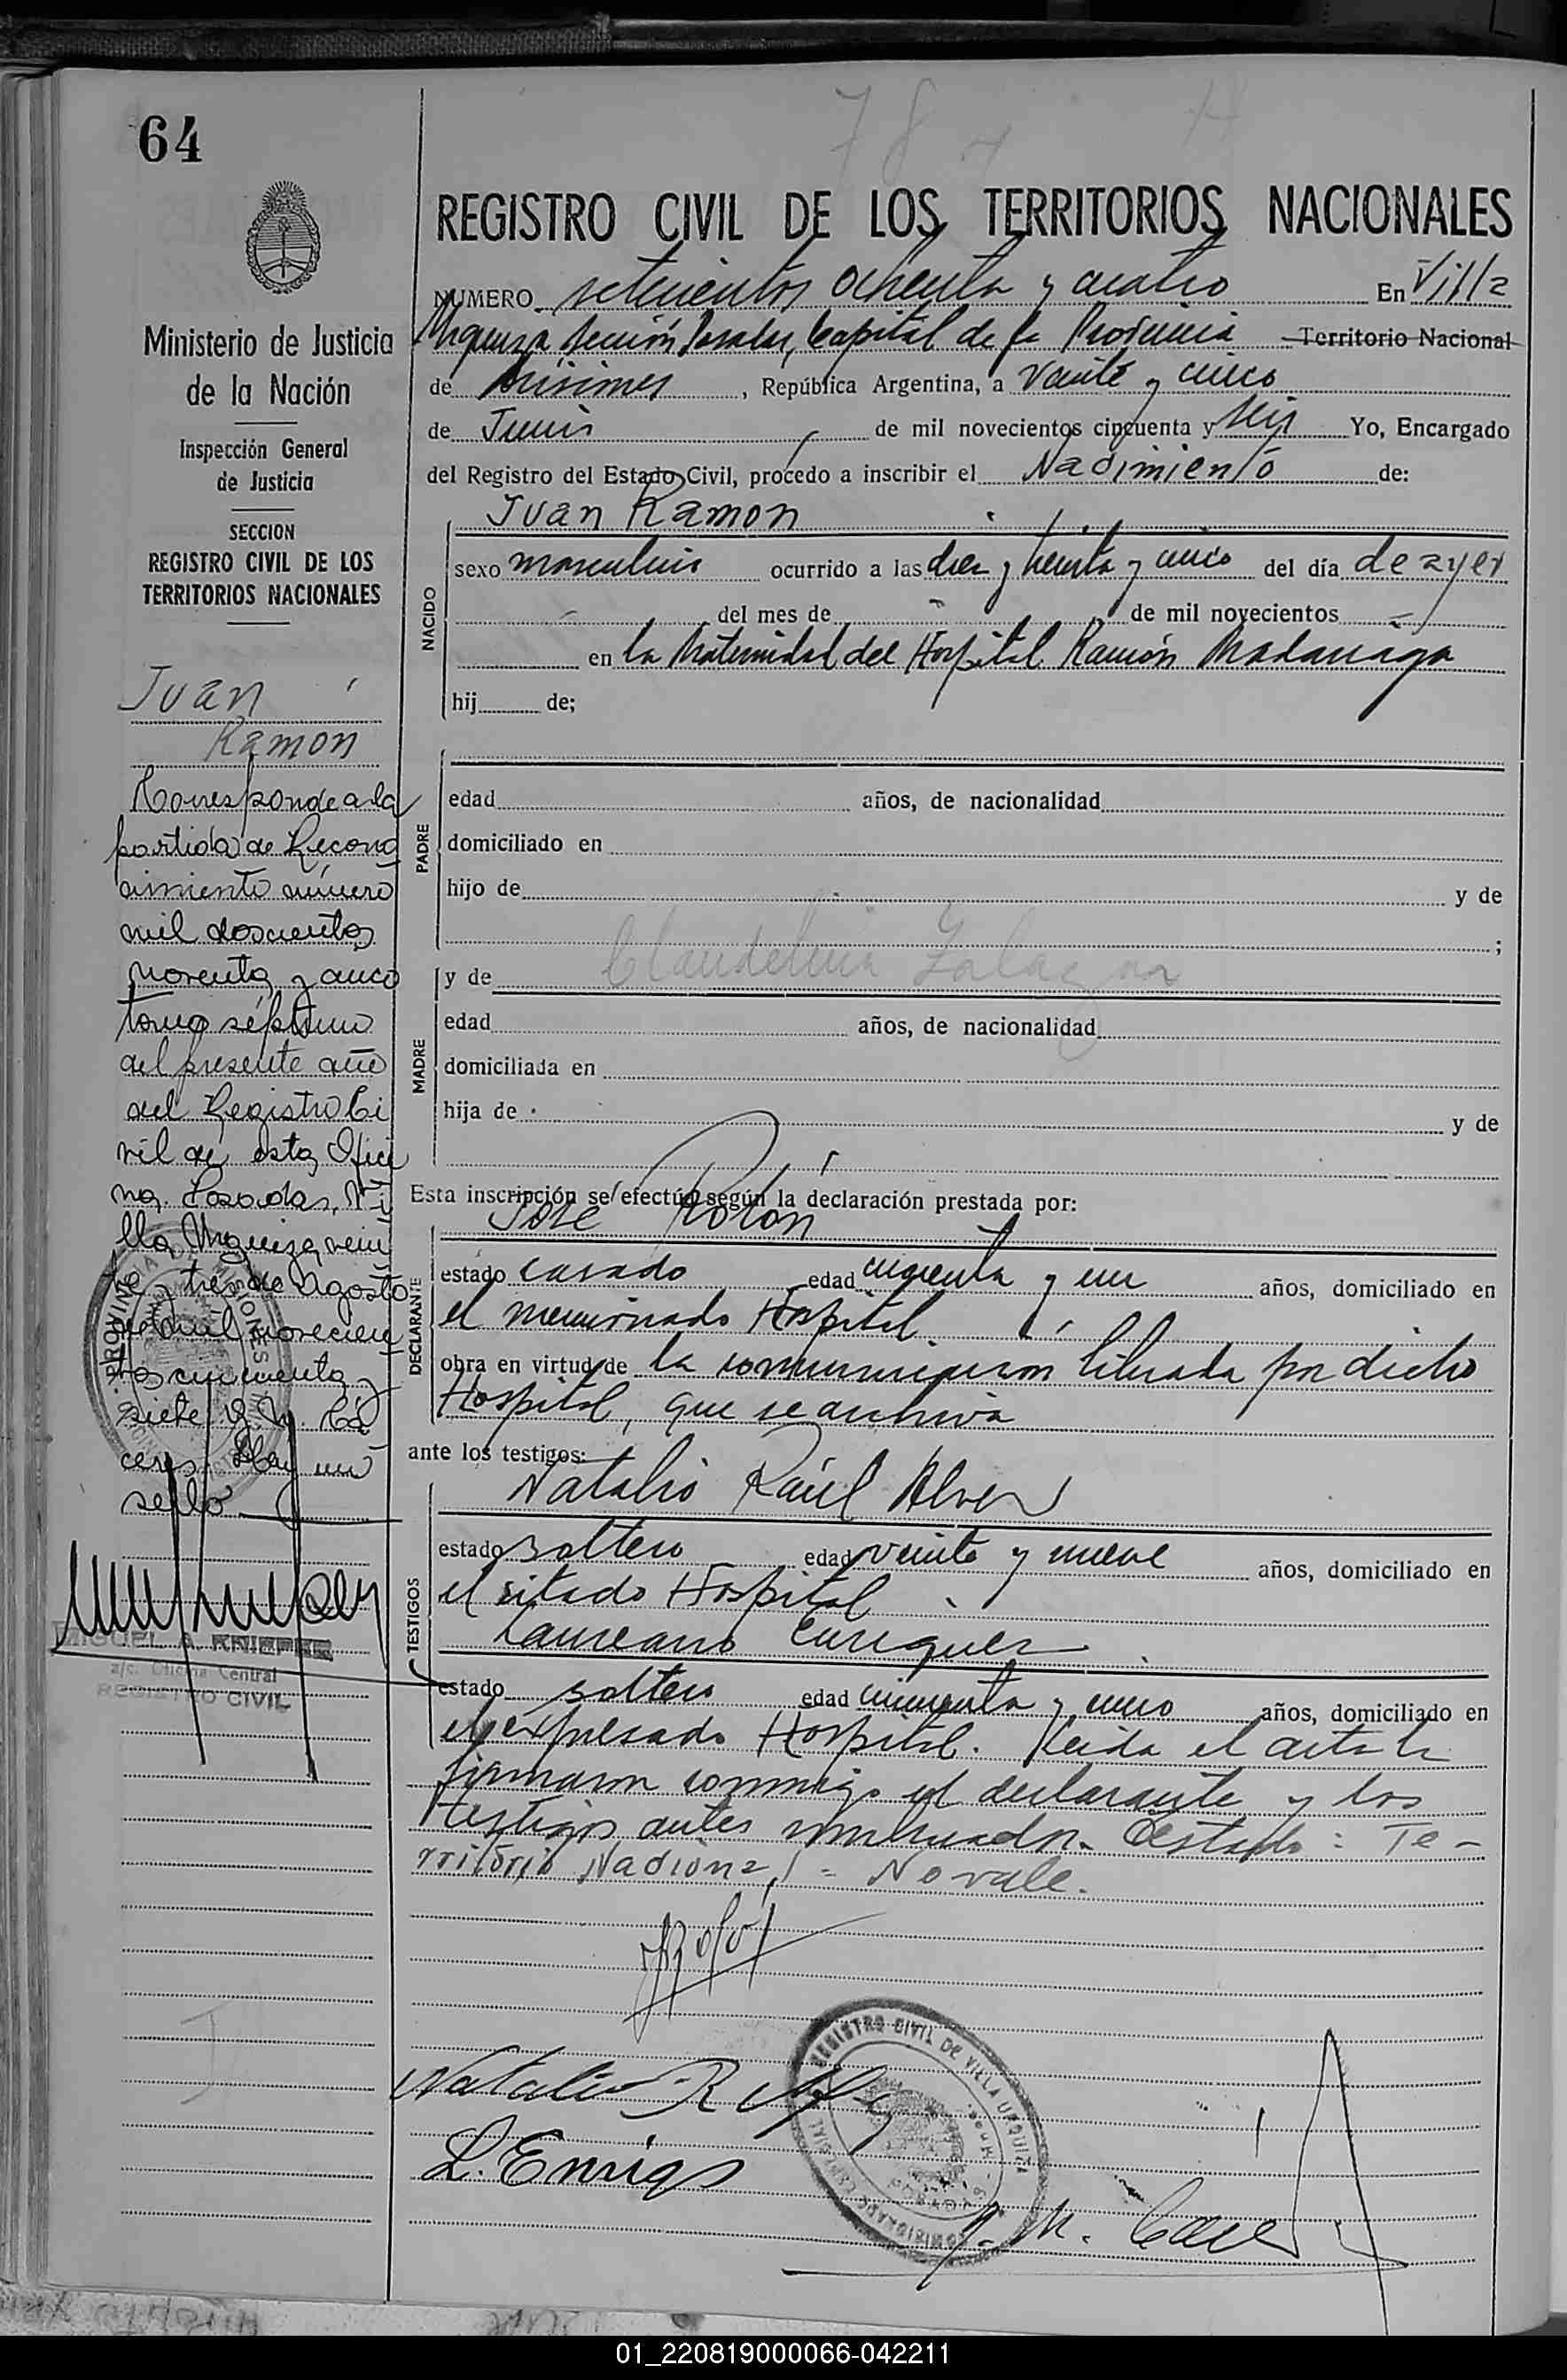 64
REGISTRO CIVIL DE LOS TERRITORIOS NACIONALES
NUMERO setecientos ochenta y cuatro En Villa
Urquiza sección Posadas, Capital de la Provincia Territorio Nacional
de Misiones, República Argentina, a veinte y cinco
de Junio de mil novecientos cincuenta y seis Yo, Encargado
del Registro del Estado Civil, procedo a inscribir el Nacimiento de:
NACIDO
Juan Ramon
sexo masculino ocurrido a las diez y treinta y cinco del día de ayer
del mes de de mil novecientos
en la Maternidad del Hospital Ramón Madariaga
hij de;
PADRE
edad años, de nacionalidad
domiciliado en
hijo de y de
;
MADRE
y de Claudelina
edad años, de nacionalidad
domiciliada en
hija de y de
Esta inscripción se efectúa según la declaración prestada por:
DECLARANTE
José Rolón
estado casado edad cincuenta y un años, domiciliado en
el mencionado Hospital
obra en virtud de la comunicación librada por dicho
Hospital, que se archiva
ante los testigos:
TESTIGOS
Natalio Raúl Alvez
estado soltero edad veinte y nueve años, domiciliado en
el citado Hospital
Laureano Enriquez
estado soltero edad cincuenta y cinco años, domiciliado en
el expresado Hospital. Leida el acta la
firmaron conmigo el declarante y los
testigos antes nombrados. Testado: Te-
rritorio Nacional = No vale.
L. Enriqz
REGISTRO CIVIL DE VILLA URQUIZA
POSADAS
Ministerio de Justicia
de la Nación
Inspección General
de Justicia
SECCION
REGISTRO CIVIL DE LOS
TERRITORIOS NACIONALES
Juan
Ramon
Corresponde a la
partida de Recono
cimiento número
mil doscientos
noventa y cinco
tomo séptimo
del presente año
del Registro Ci
vil de esta Ofici
na. Posadas, Vi
lla Urquiza, vein
te y tres de Agosto
de mil novecien
tos cincuenta y
siete J. M. Cá
ceres. Hay un
sello
MIGUEL A. KNIEPER
a/c. Oficina Central
REGISTRO CIVIL
01_220819000066-042211